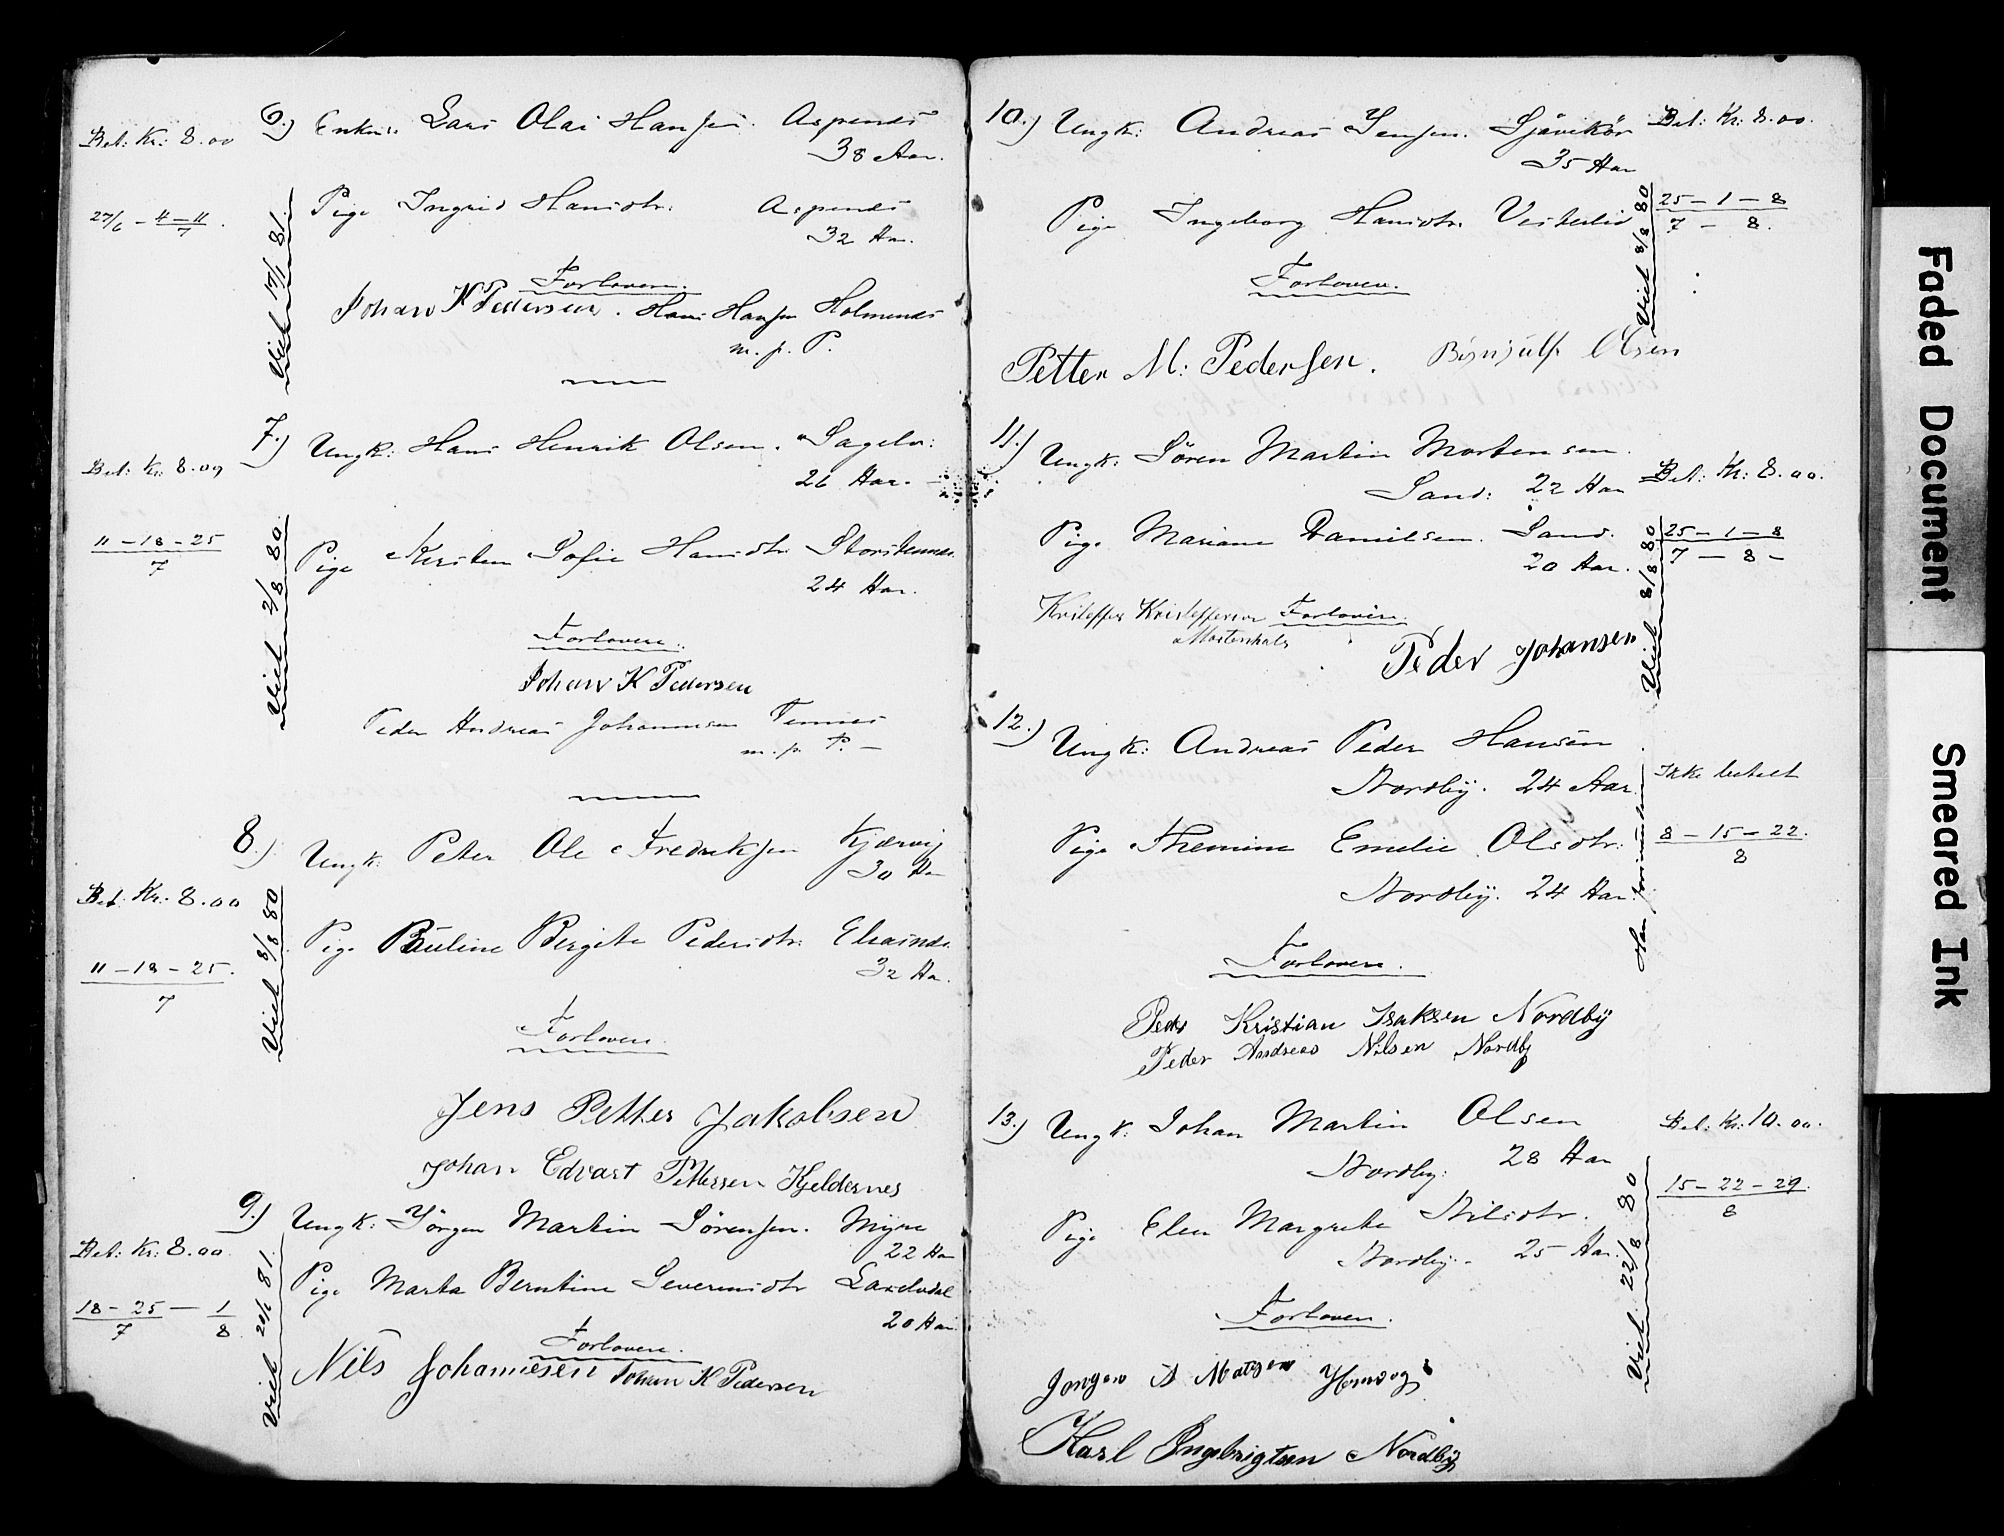 6.) Enkem. Lars Olai Hansen. Aspenes
38 Aar.
Bet: Kr: 8.00
Pige Ingrid Hansdtr. Aspenes
32 Aar.
27/6 - 4 - 11
7
Viet 17/1 81.
Forlovere.
Johan K Pedersen. Hans Hansen Holmenes
m. p. P.
7.) Ungk: Hans Henrik Olsen. Sagelv:
26 Aar.
Bet: Kr: 8.00
Pige Kirsten Sofie Hansdtr. Storstennes
24 Aar.
11 - 18 - 25
7
Viet 2/8 80.
Forlovere.
Johan K Pedersen
Peder Andreas Johannesen Tennes
m. p. P. -
8.) Ungk: Peter Ole Fredriksen Kjærvig
30 Aar
Bet. Kr: 8.00
Pige Pauline Bergite Pedersdtr.
32 Aar.
11 - 18 - 25.
7
Viet 8/8 80
Forlovere.
Jens Petter Jakobsen
Johan Edvart Pettersen Kjeldernes
9.) Ungk: Jörgen Martin Sörensen. Myre
22 Aar
Bet: Kr: 8.00.
Pige Marta Berntine Severinsdtr
20 Aar.
18 - 25 - 1
7 8
Viet 20/1 81.
Forlovere.
Nils Johannesen Johan K Pedersen
10.) Ungk: Andreas Jensen. Sjåvikör
35 Aar
Bet: Kr: 8.00.
Pige Ingeborg Hansdtr. Vesterlid
25 - 1 - 8
7 - 8.
Viet 8/8 80
Forlovere.
Petter M: Pedersen. Olsen
11.) Ungk: Sören Martin Mortensen.
Sand: 22 Aar
Bet: Kr: 8.00.
Pige Mariane Danielsen. Sand.
20 Aar.
25 - 1 - 8
7 - 8 -
Viet 8/8 80
Kristoffer Kristoffersen Forlovere.
Mortenhals
Peder Johansen
12.) Ungk: Andreas Peder Hansen
Nordby. 24 Aar.
Ikke betalt
Pige Emelie Olsdtr.
Nordby. 24 Aar.
8 - 15 - 22.
8
Forlovere.
Peder Kristian Isaksen Nordby
Peder Andreas Nilsen Nordby
13.) Ungk: Johan Martin Olsen
Nordby: 28 Aar
Bet: Kr: 10.00.
Pige Elen Margrete Nilsdtr.
Nordby. 25 Aar.
15 - 22 - 29.
8
Viet 22/8 80
Forlovere.
Karl Ingebrigtsen Nordby
Faded Document
Smeared Ink